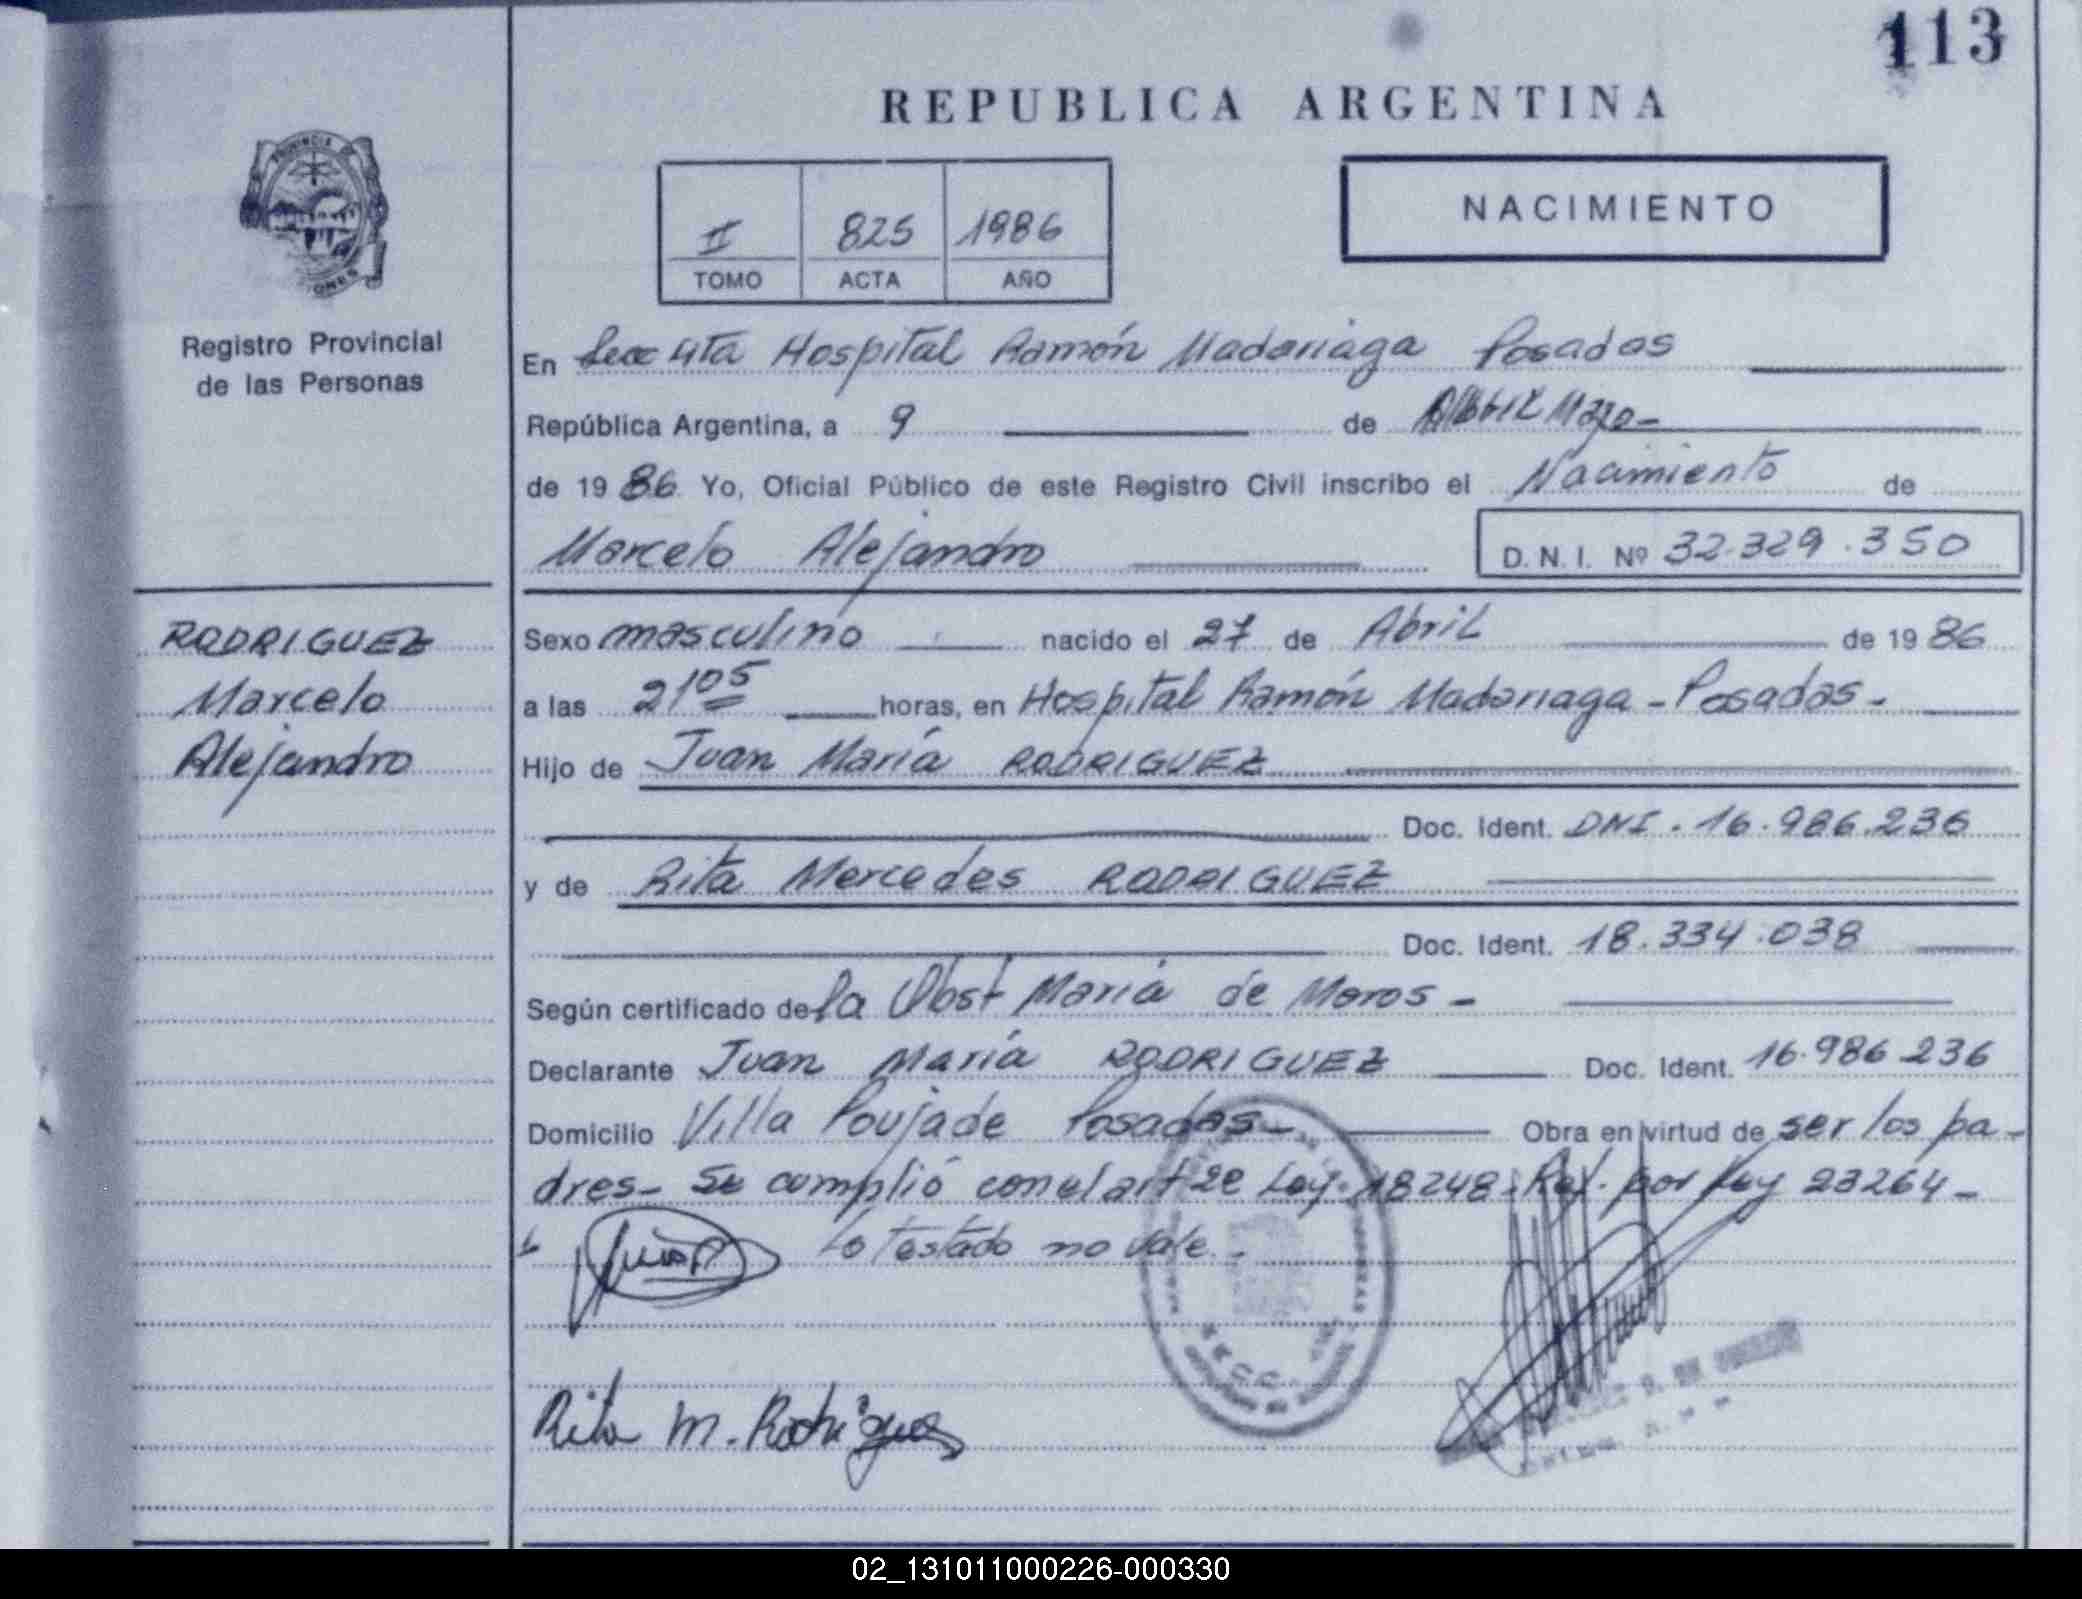 113
REPUBLICA ARGENTINA
II 825 1986
TOMO ACTA AÑO
NACIMIENTO
PROVINCIA DE
Registro Provincial
de las Personas
En Secc 4ta Hospital Ramón Madariaga Posadas
República Argentina, a 9 de Abril Mayo-
de 1986 Yo, Oficial Público de este Registro Civil inscribo el Nacimiento de
Marcelo Alejandro D. N. I. Nº 32.329.350
RODRIGUEZ
Marcelo
Alejandro
Sexo masculino nacido el 27 de Abril de 1986
a las 21 05 horas, en Hospital Ramón Madariaga - Posadas -
Hijo de Juan María RODRIGUEZ
Doc. Ident. DNI. 16.986.236
y de Rita Mercedes RODRIGUEZ
Doc. Ident. 18.334.038
Según certificado de la Obst María de Moros -
Declarante Juan María RODRIGUEZ Doc. Ident. 16.986 236
Domicilio Villa Poujade Posadas - Obra en virtud de ser los pa-
dres- Se cumplió con el art 2e Ley. 18248. Ref. por Ley 23264-
Lo testado no vale. -
SECC.
Rita M. Rodriguez
02_131011000226-000330